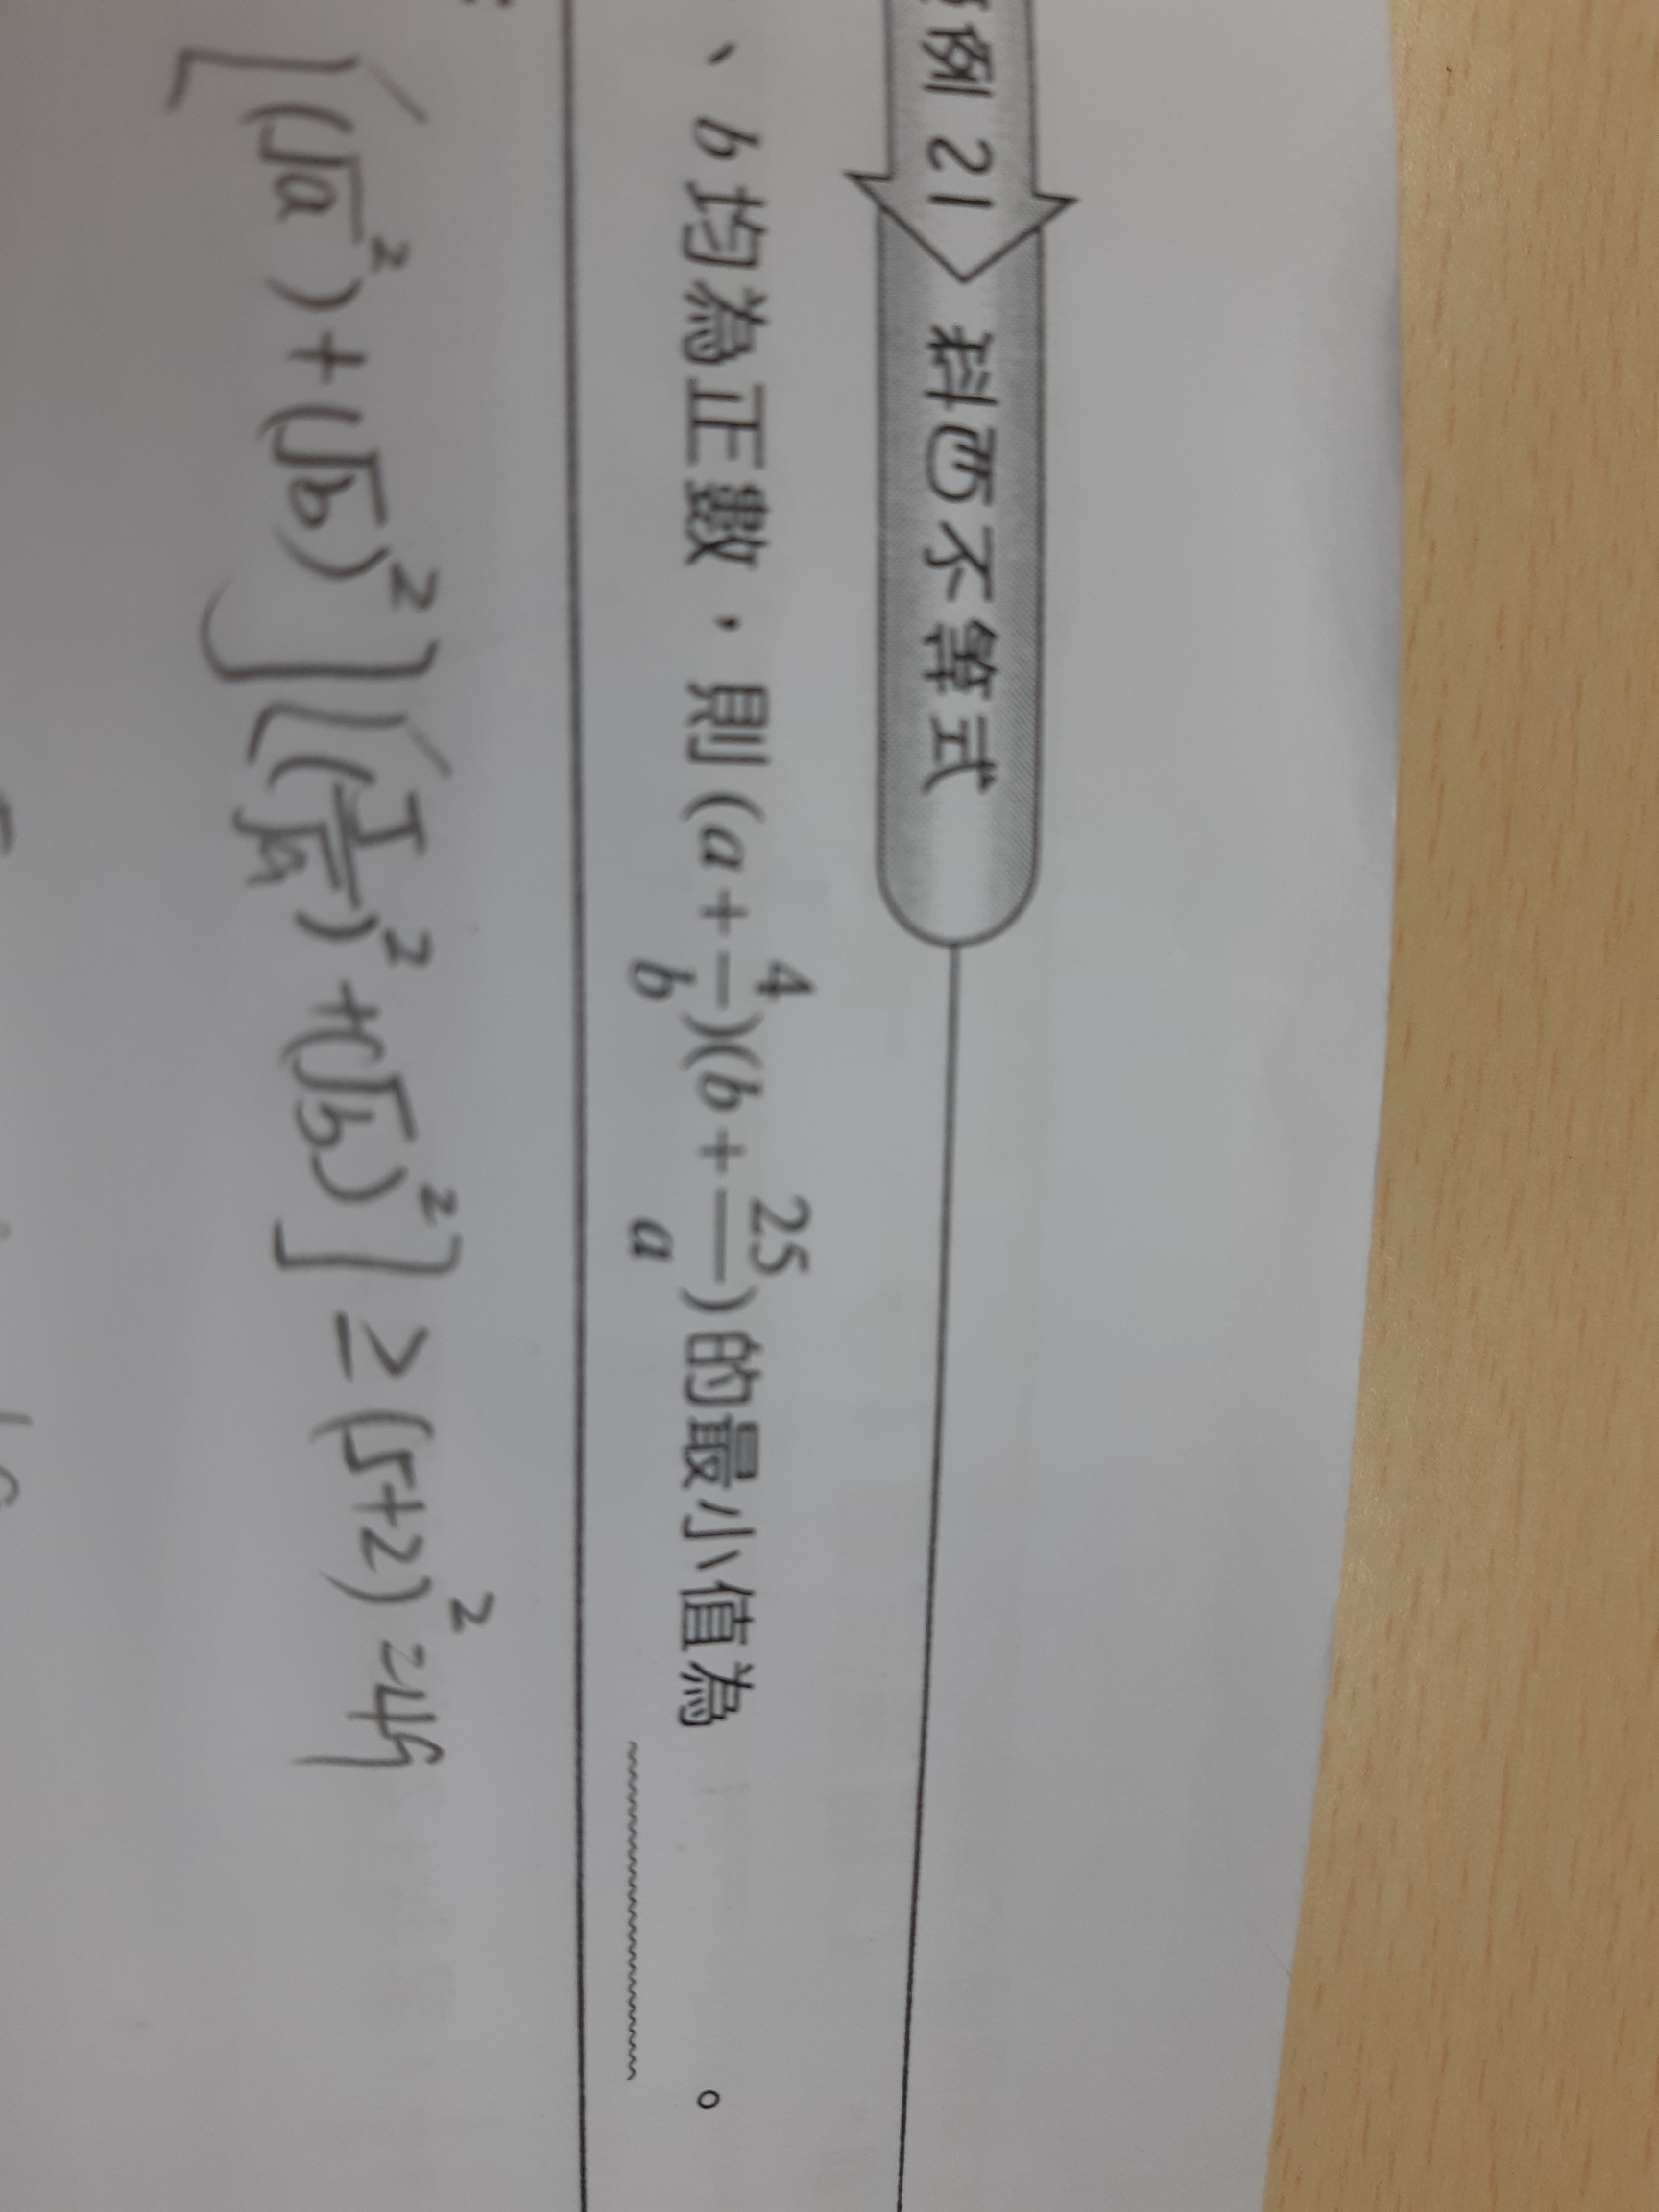 例 21 柯西不等式
、b 均為正數，則(a+4/b)(b+25/a)的最小值為 。
[(√a²)+(√b)²][(5/√a)²+(√b)²]≥(5+2)²=49